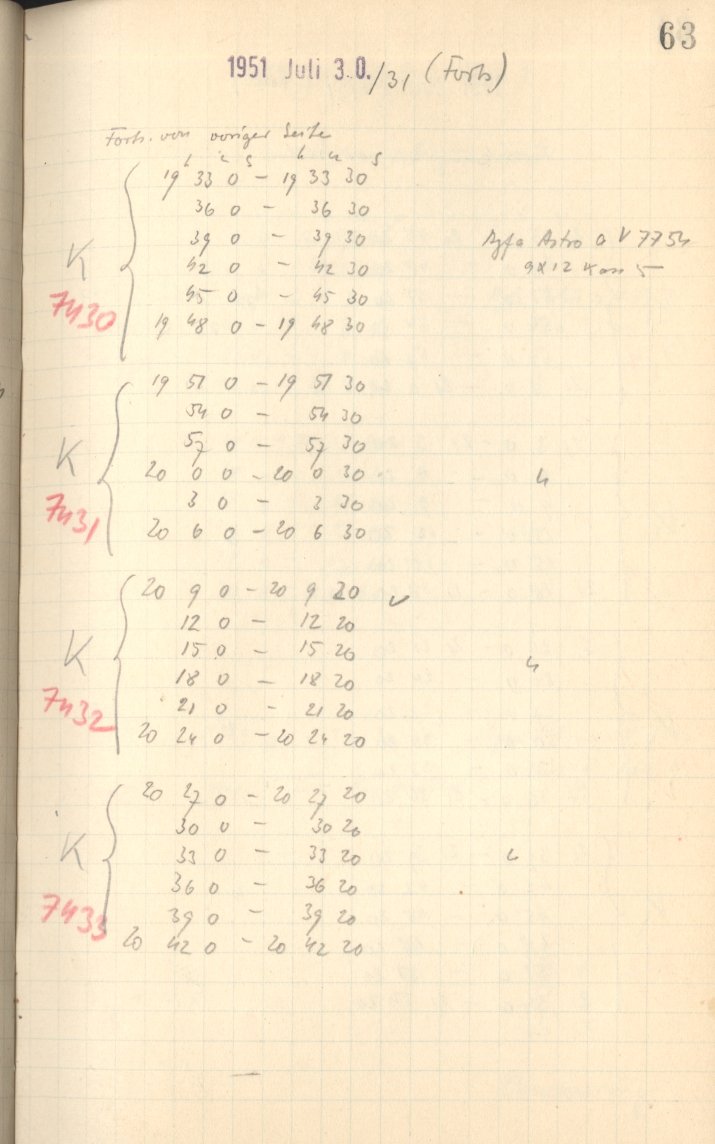 63
1951 Juli 30./31 (Forts)
Forts. von voriger Seite
h m s h m s
19 33 0 - 19 33 30
36 0 - 36 30
39 0 - 39 30
Agfa Astro
42 0 - 42 30
9x12
45 0 - 45 30
19 48 0 - 19 48 30
K
7430
19 51 0 - 19 51 30
54 0 - 54 30
57 0 - 57 30
20 0 0 - 20 0 30
3 0 - 3 30
20 6 0 - 20 6 30
K
7431
20 9 0 - 20 9 20
12 0 - 12 20
15 0 - 15 20
18 0 - 18 20
21 0 - 21 20
20 24 0 - 20 24 20
K
7432
20 27 0 - 20 27 20
30 0 - 30 20
33 0 - 33 20
36 0 - 36 20
39 0 - 39 20
20 42 0 - 20 42 20
K
7433